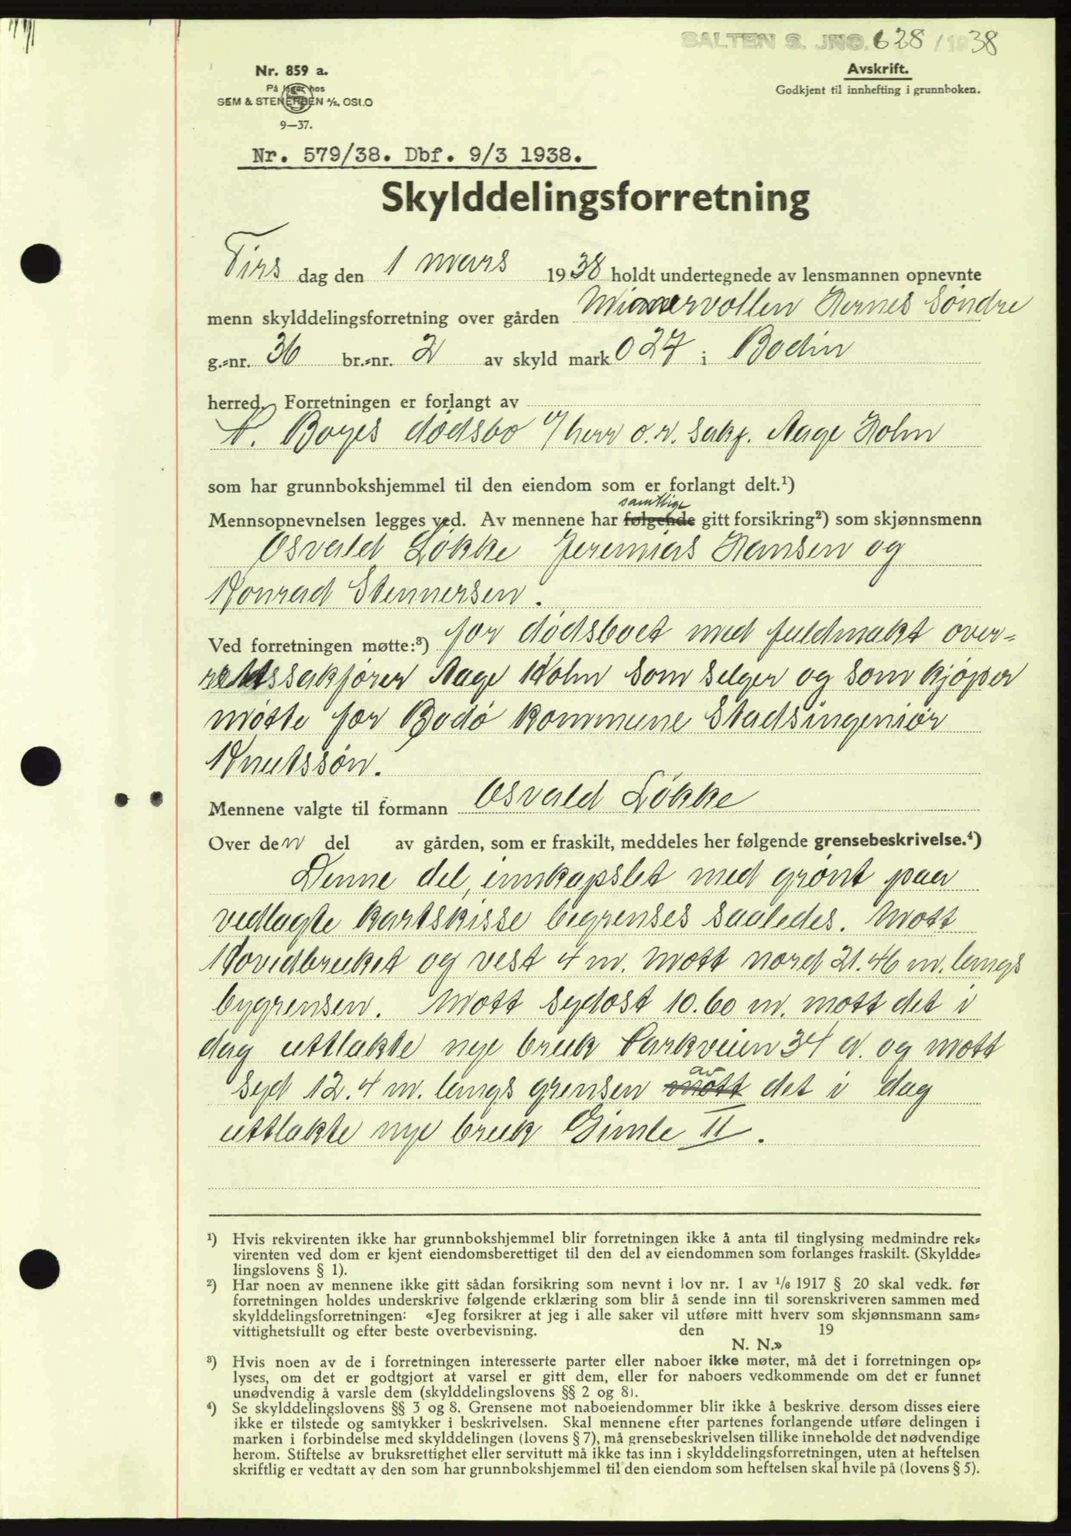 SALTEN S. JNO. 628 / 1938
Nr. 859 a.
På lager hos
SEM & STENERSEN A/S, OSLO
9—37.
Avskrift.
Godkjent til innhefting i grunnboken.
Nr. 579/38. Dbf. 9/3 1938.
Skylddelingsforretning
Tirs dag den 1 mars 1938 holdt undertegnede av lensmannen opnevnte
menn skylddelingsforretning over gården Hernes Søndre
g.-nr. 36 br.-nr. 2 av skyld mark 0 27 i Bodin
herred. Forretningen er forlangt av
Boyes dødsbo v/ herr o.r. sakf. Aage Holm
som har grunnbokshjemmel til den eiendom som er forlangt delt.¹)
samtlige
Mennsopnevnelsen legges ved. Av mennene har følgende gitt forsikring²) som skjønnsmenn
Osvald Løkke Jeremias Hansen og
Konrad Stennersen.
Ved forretningen møtte:³) for dødsboet med fuldmakt over-
rettssakfører Aage Holm som selger og som kjøper
møtte for Bodø kommune Stadsingeniør
Knutssøn.
Mennene valgte til formann Osvald Løkke
Over den del av gården, som er fraskilt, meddeles her følgende grensebeskrivelse.⁴)
Denne del, innkapslet med grønt paa
vedlagte kartskisse begrenses saaledes. Mott
Hovedbruket og vest 4 m. Mott nord 21.46 m. langs
bygrensen. Mott sydost 10.60 m. mott det i
dag uttlakte nye bruk Parkveien 34 a. og mott
av
syd 12.4 m. langs grensen mott det i dag
uttlakte nye bruk Gimle II.
¹) Hvis rekvirenten ikke har grunnbokshjemmel blir forretningen ikke å anta til tinglysing medmindre rek-
virenten ved dom er kjent eiendomsberettiget til den del av eiendommen som forlanges fraskilt. (Skyldde-
lingslovens § 1).
²) Har noen av mennene ikke gitt sådan forsikring som nevnt i lov nr. 1 av 1/6 1917 § 20 skal vedk. før
forretningen holdes underskrive følgende erklæring som blir å sende inn til sorenskriveren sammen med
skylddelingsforretningen: «Jeg forsikrer at jeg i alle saker vil utføre mitt hverv som skjønnsmann sam-
vittighetsfullt og efter beste overbevisning. den 19
N. N.»
³) Hvis noen av de i forretningen interesserte parter eller naboer ikke møter, må det i forretningen op-
lyses, om det er godtgjort at varsel er gitt dem, eller for naboers vedkommende om det er funnet
unødvendig å varsle dem (skylddelingslovens §§ 2 og 8).
⁴) Se skylddelingslovens §§ 3 og 8. Grensene mot naboeiendommer blir ikke å beskrive, dersom disses eiere
ikke er tilstede og samtykker i beskrivelsen. Skal mennene efter partenes forlangende utføre delingen i
marken i forbindelse med skylddelingen (lovens § 7), må grensebeskrivelsen tillike inneholde det nødvendige
herom. Stiftelse av bruksrettighet eller servitutt må ikke tas inn i skylddelingsforretningen, uten at heftelsen
skriftlig er vedtatt av den som har grunnbokshjemmel til den eiendom som heftelsen skal hvile på (lovens § 5).